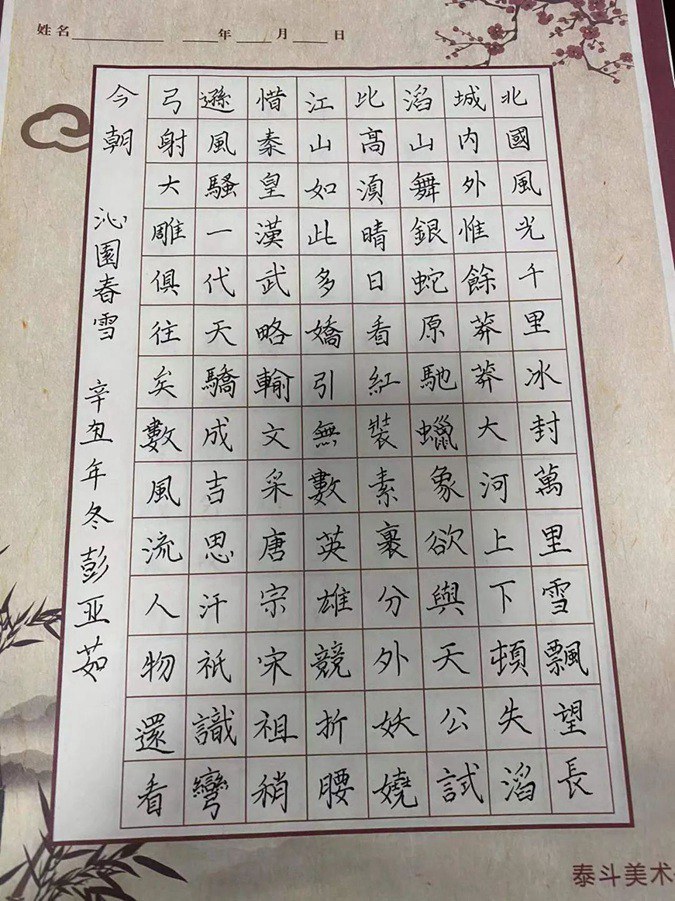 姓名__________ ____年____月____日
北國風光千里冰封萬里雪飄望長
城內外惟餘莽莽大河上下頓失滔
滔山舞銀蛇原馳蠟象欲與天公試
比高湏晴日看紅裝素裹分外妖嬈
江山如此多嬌引無數英雄競折腰
惜秦皇漢武略輸文采唐宗宋祖稍
遜風騷一代天驕成吉思汗祇識彎
弓射大雕俱往矣數風流人物還看
今朝 沁園春雪 辛丑年冬彭亚茹
泰斗美术